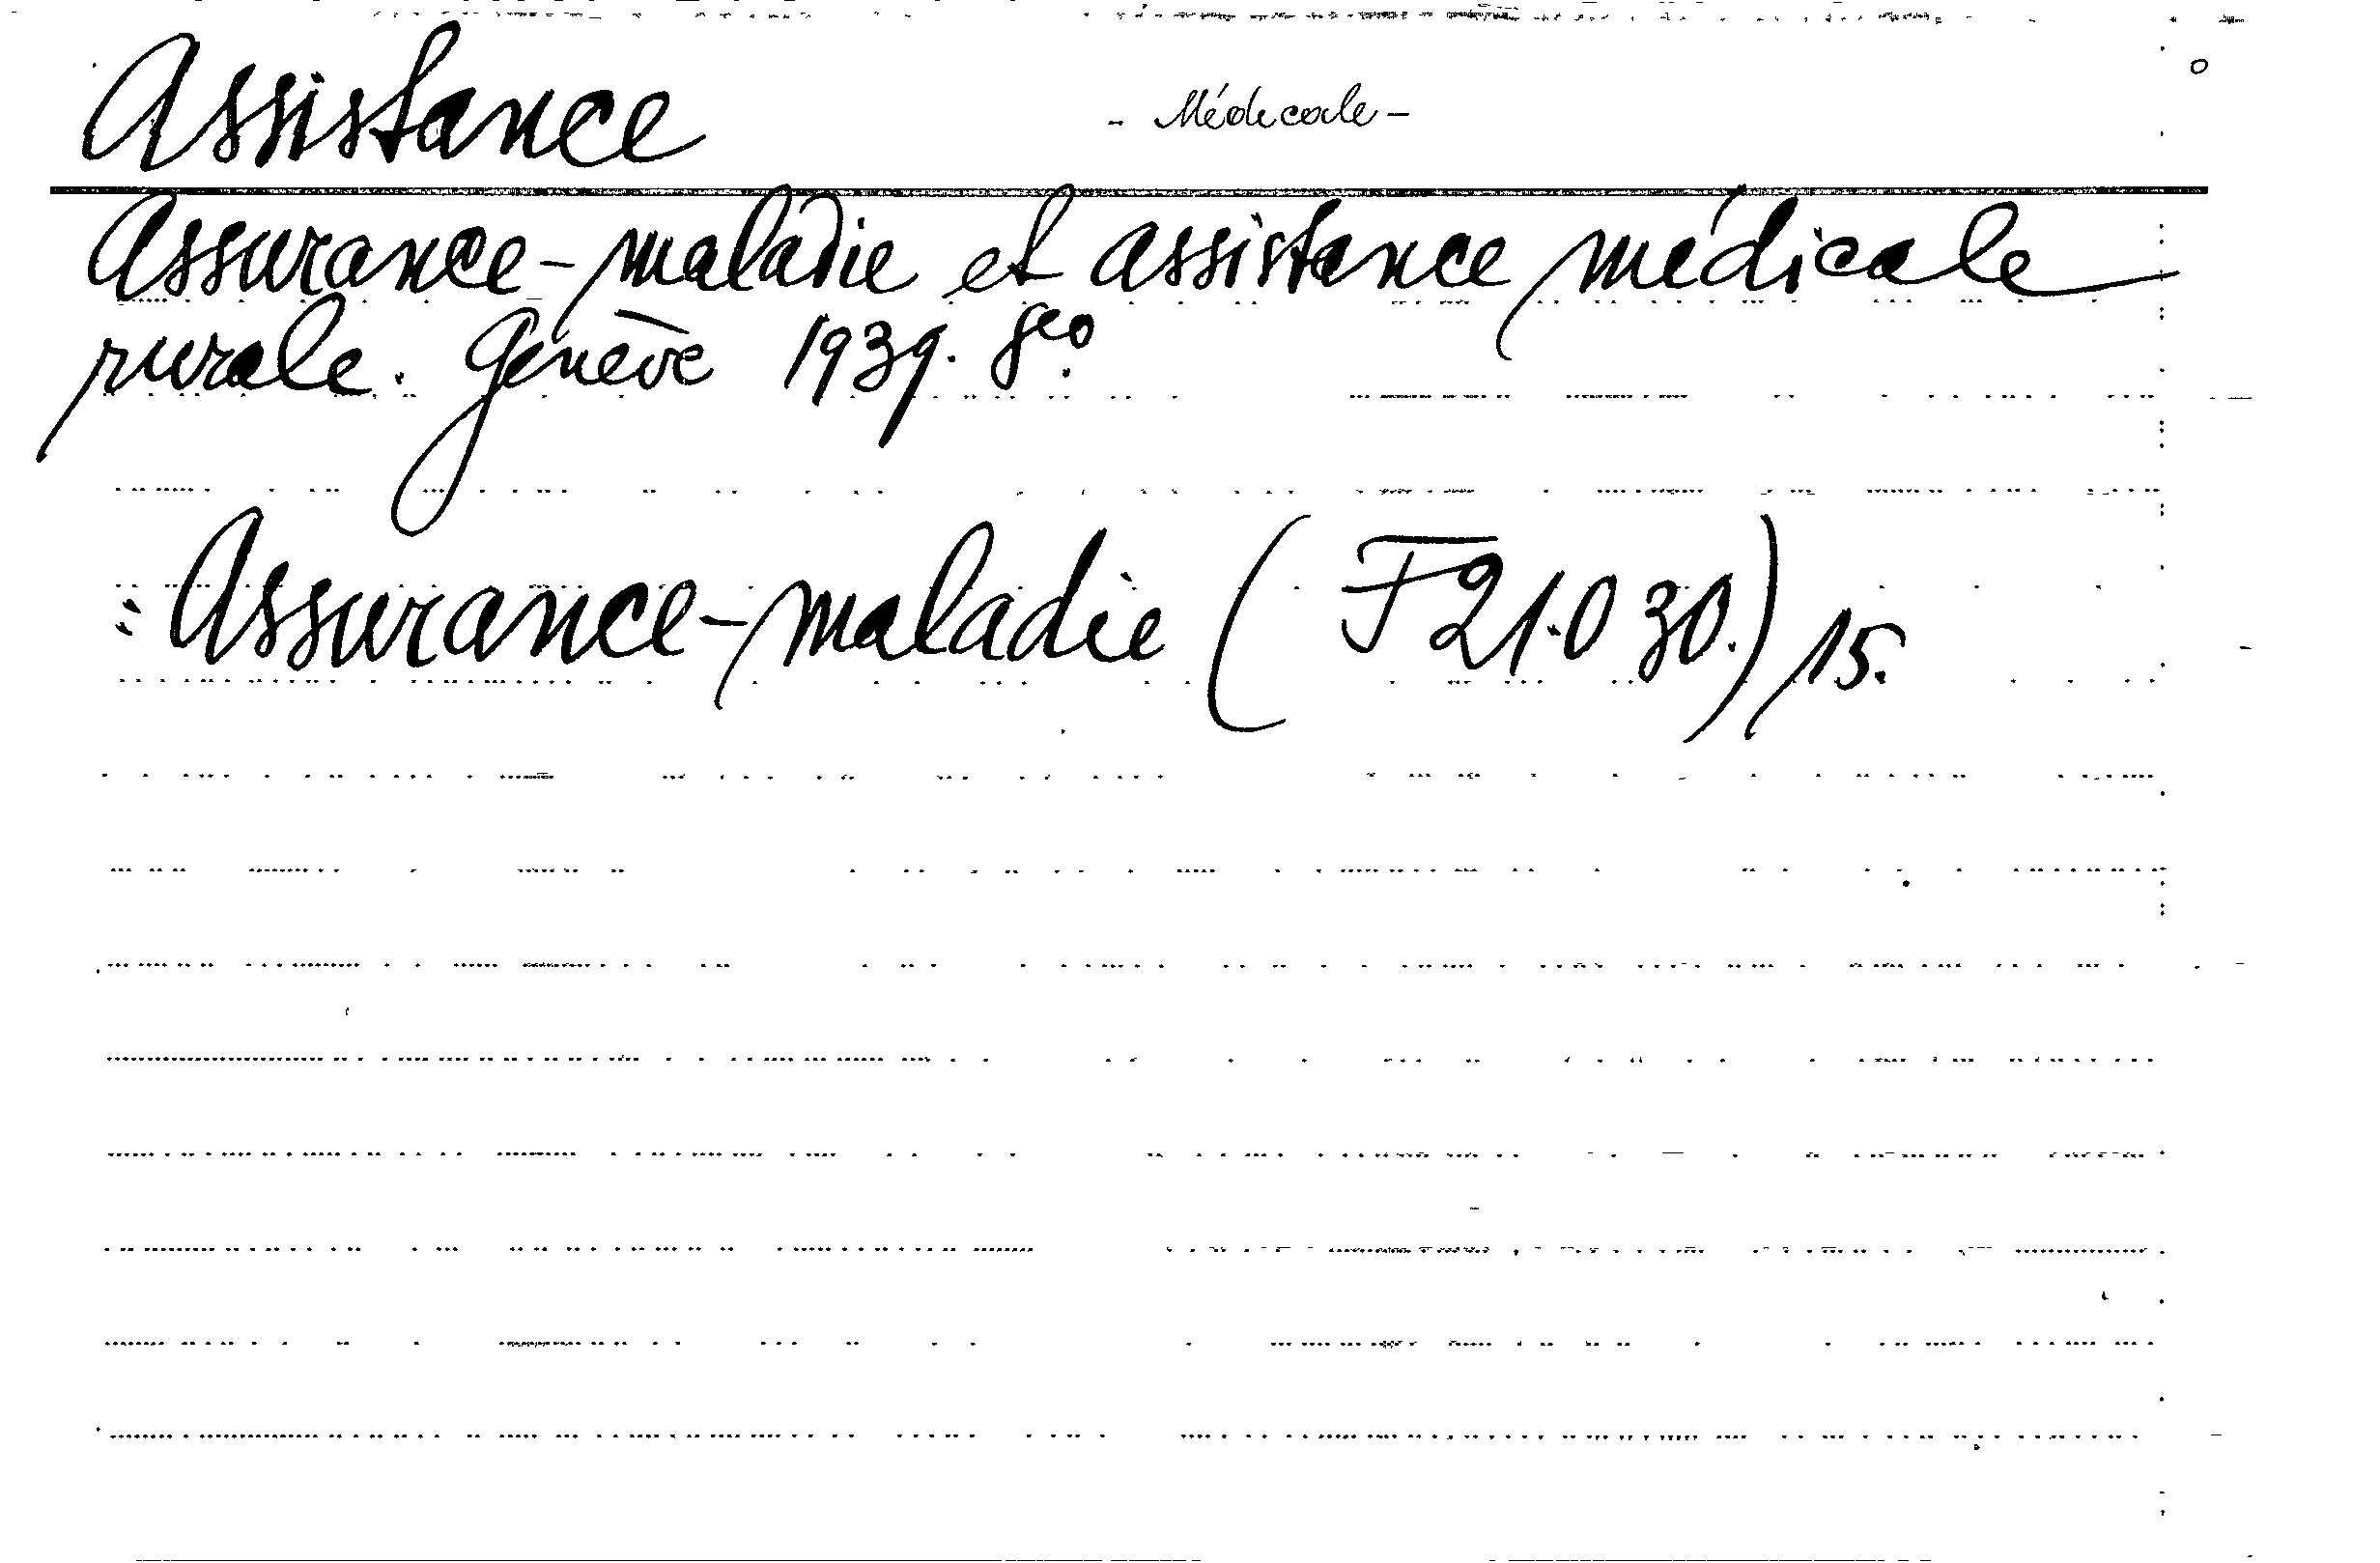 Assistance - Médicale -
Assurance-maladie et assistance médicale
rurale. Genève 1939. 8vo.
: Assurance-maladie (F21.030.) 15.